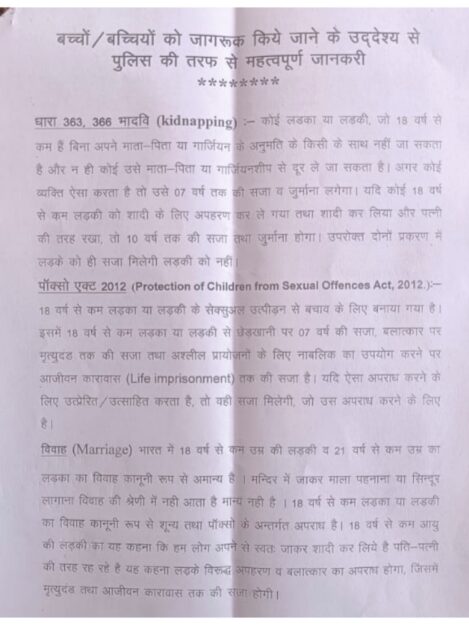 बच्चों/बच्चियों को जागरूक किये जाने के उद्देश्य से
पुलिस की तरफ से महत्वपूर्ण जानकरी
********
धारा 363, 366 भादवि (kidnapping) :– कोई लडका या लडकी, जो 18 वर्ष से
कम हैं बिना अपने माता-पिता या गार्जियन के अनुमति के किसी के साथ नहीं जा सकता
है और न ही कोई उसे माता-पिता या गार्जियनशीप से दूर ले जा सकता है। अगर कोई
व्यक्ति ऐसा करता है तो उसे 07 वर्ष तक की सजा व जुर्माना लगेगा। यदि कोई 18 वर्ष
से कम लडकी को शादी के लिए अपहरण कर ले गया तथा शादी कर लिया और पत्नी
की तरह रखा, तो 10 वर्ष तक की सजा तथा जुर्माना होगा। उपरोक्त दोनों प्रकरण में
लडके को ही सजा मिलेगी लडकी को नही।
पॉक्सो एक्ट 2012 (Protection of Children from Sexual Offences Act, 2012.):–
18 वर्ष से कम लडका या लडकी के सेक्सुअल उत्पीड़न से बचाव के लिए बनाया गया है।
इसमें 18 वर्ष से कम लडका या लडकी से छेडखानी पर 07 वर्ष की सजा, बलात्कार पर
मृत्युदंड तक की सजा तथा अश्लील प्रायोजनों के लिए नाबलिक का उपयोग करने पर
आजीवन कारावास (Life imprisonment) तक की सजा है। यदि ऐसा अपराध करने के
लिए उत्प्रेरित/उत्साहित करता है, तो वही सजा मिलेगी, जो उस अपराध करने के लिए
है।
विवाह (Marriage) भारत में 18 वर्ष से कम उम्र की लडकी व 21 वर्ष से कम उम्र का
लडका का विवाह कानूनी रूप से अमान्य है । मन्दिर में जाकर माला पहनाना या सिन्दूर
लागाना विवाह की श्रेणी में नही आता है मान्य नही है । 18 वर्ष से कम लडका या लडकी
का विवाह कानूनी रूप से शून्य तथा पॉक्सो के अन्तर्गत अपराध है। 18 वर्ष से कम आयु
की लडकी का यह कहना कि हम लोग अपने से स्वतः जाकर शादी कर लिये है पति-पत्नी
की तरह रह रहे है यह कहना लडके विरूद्ध अपहरण व बलात्कार का अपराध होगा, जिसमें
मृत्युदंड तथा आजीवन कारावास तक की सजा होगी।